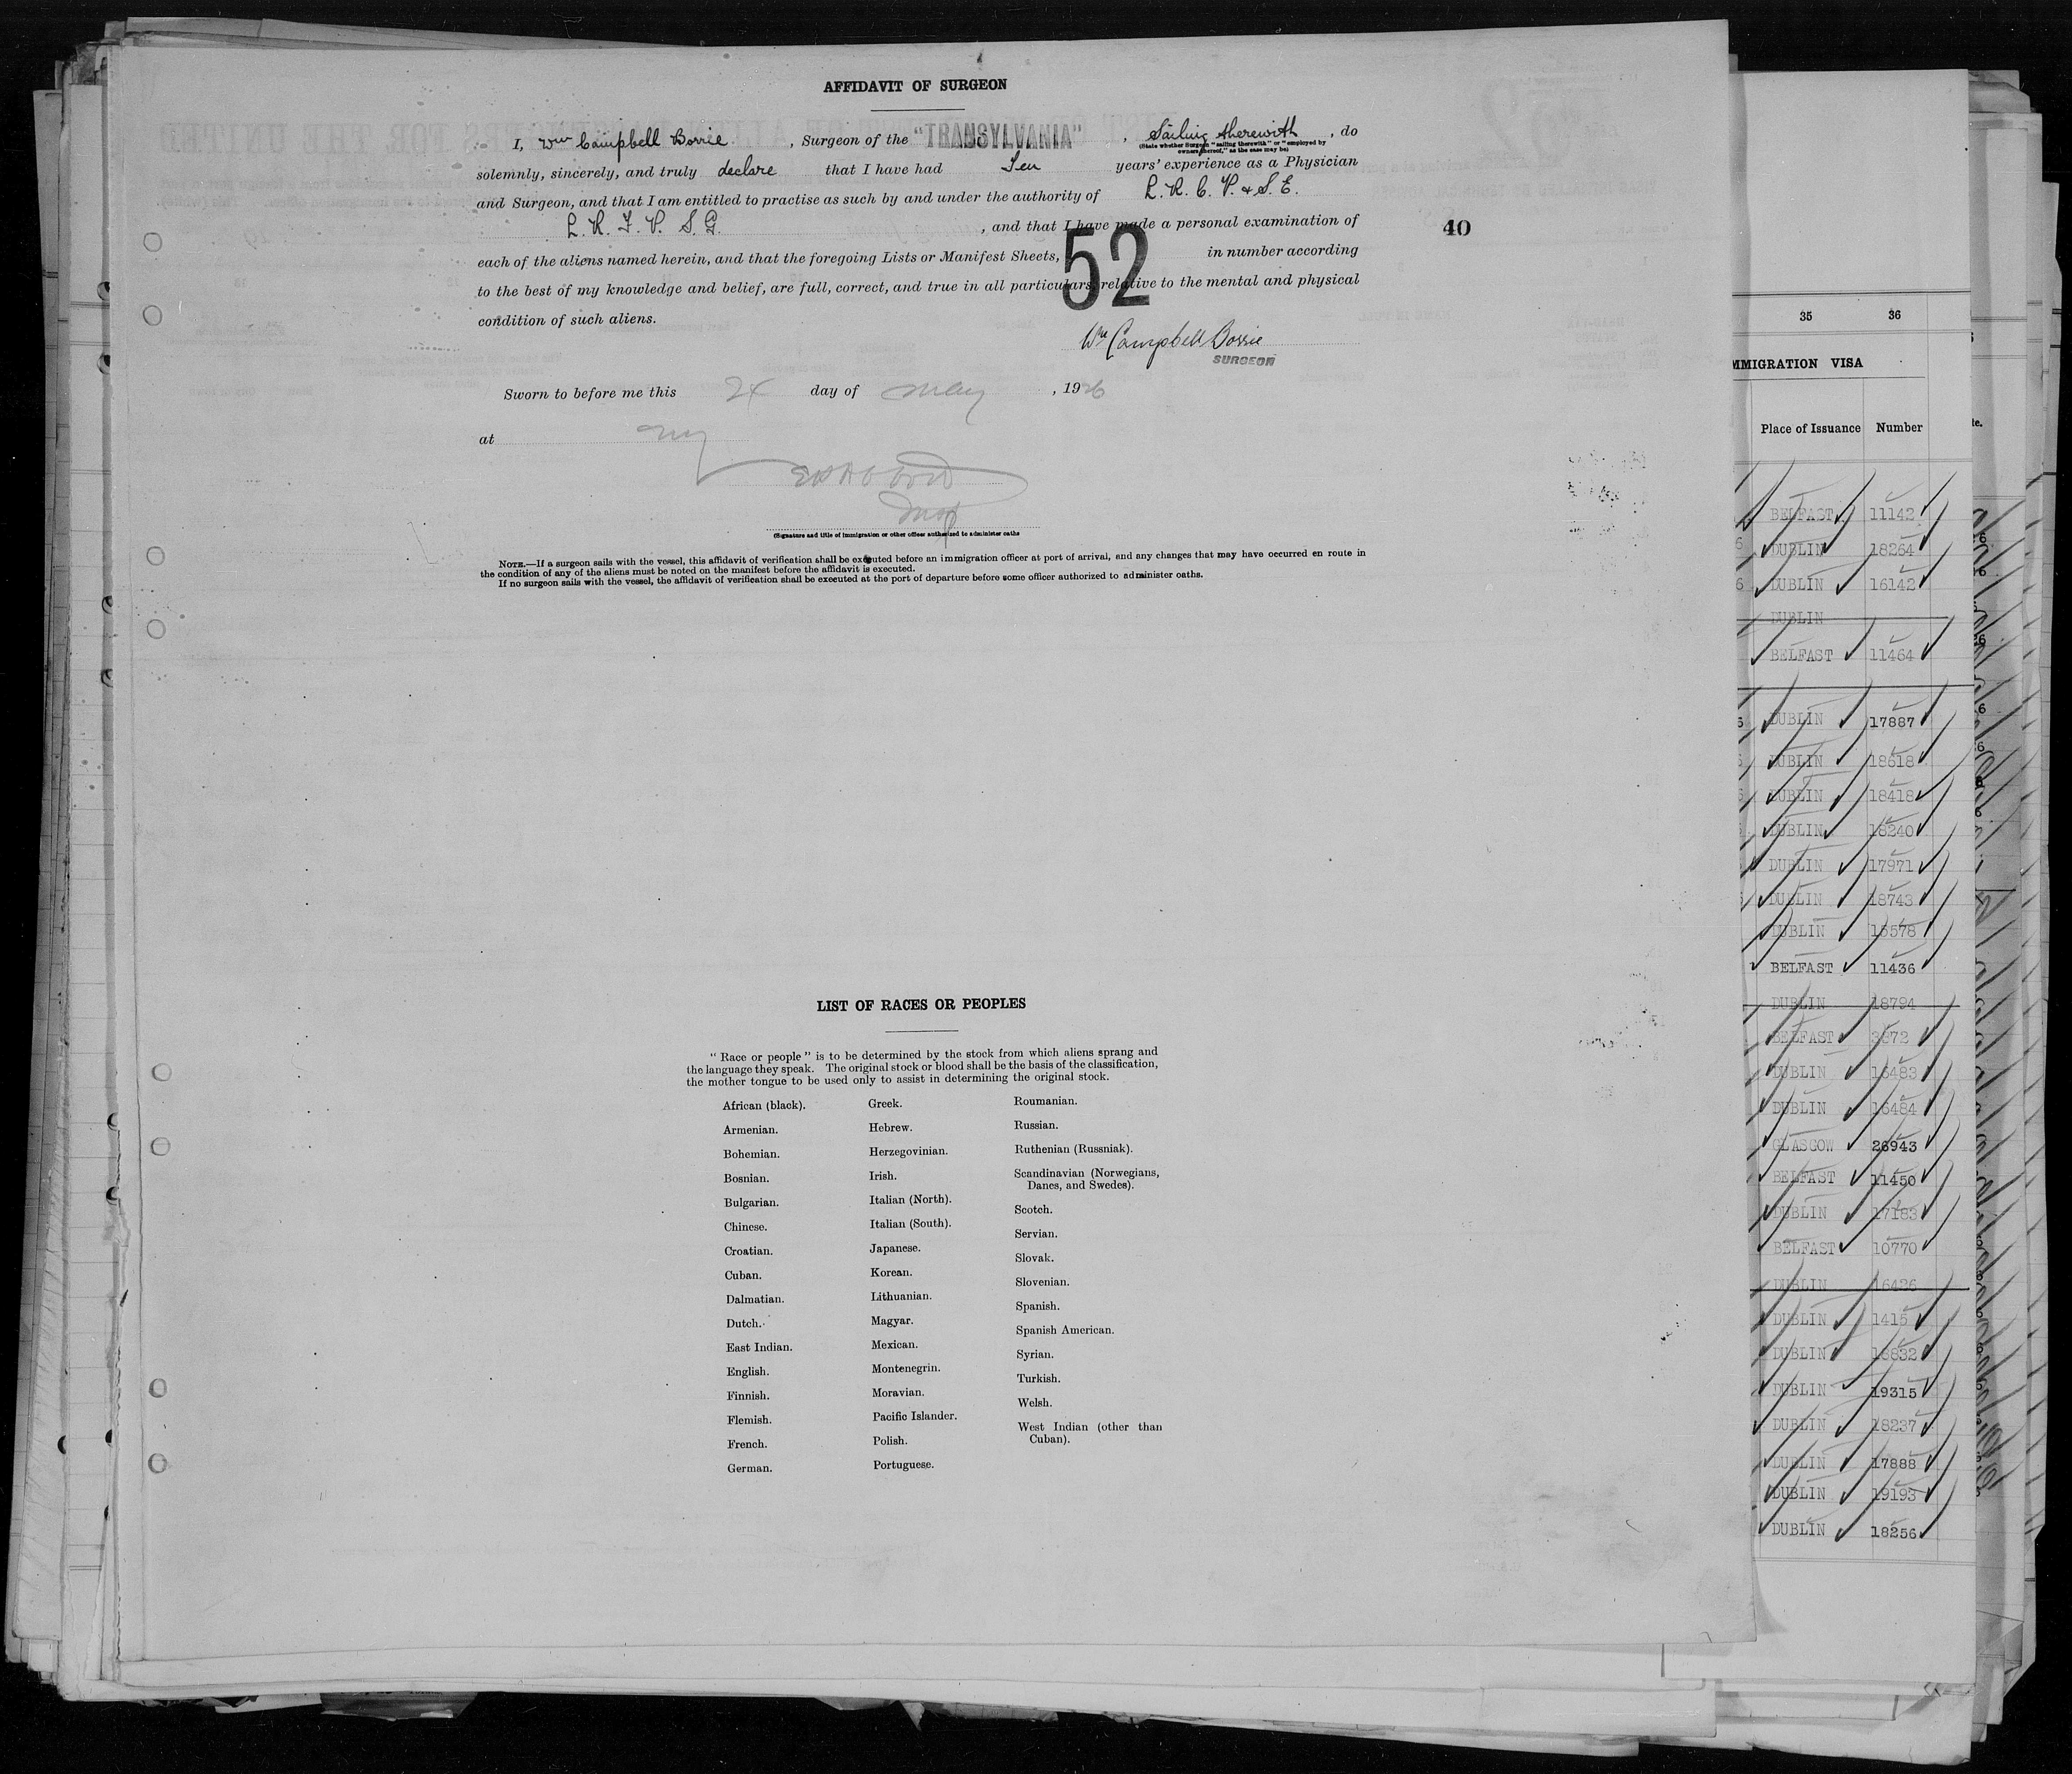 AFFIDAVIT OF SURGEON
I, Wm Campbell Borrie, Surgeon of the "TRANSYLVANIA", Sailing therewith, do
(State whether Surgeon "sailing therewith" or "employed by
owners thereof," as the case may be)
solemnly, sincerely, and truly declare that I have had Ten years' experience as a Physician
and Surgeon, and that I am entitled to practise as such by and under the authority of L. R. C. P. & S. E.
L. R. F. P. S. G. , and that I have made a personal examination of
40
each of the aliens named herein, and that the foregoing Lists or Manifest Sheets, 52 in number according
to the best of my knowledge and belief, are full, correct, and true in all particulars, relative to the mental and physical
condition of such aliens.
Wm Campbell Borrie
SURGEON
Sworn to before me this 24 day of May , 1926
at NY
Insp
(Signature and title of immigration or other officer authorized to administer oaths
NOTE.—If a surgeon sails with the vessel, this affidavit of verification shall be executed before an immigration officer at port of arrival, and any changes that may have occurred en route in
the condition of any of the aliens must be noted on the manifest before the affidavit is executed.
If no surgeon sails with the vessel, the affidavit of verification shall be executed at the port of departure before some officer authorized to administer oaths.
LIST OF RACES OR PEOPLES
"Race or people" is to be determined by the stock from which aliens sprang and
the language they speak. The original stock or blood shall be the basis of the classification,
the mother tongue to be used only to assist in determining the original stock.
African (black).
Armenian.
Bohemian.
Bosnian.
Bulgarian.
Chinese.
Croatian.
Cuban.
Dalmatian.
Dutch.
East Indian.
English.
Finnish.
Flemish.
French.
German.
Greek.
Hebrew.
Herzegovinian.
Irish.
Italian (North).
Italian (South).
Japanese.
Korean.
Lithuanian.
Magyar.
Mexican.
Montenegrin.
Moravian.
Pacific Islander.
Polish.
Portuguese.
Roumanian.
Russian.
Ruthenian (Russniak).
Scandinavian (Norwegians,
Danes, and Swedes).
Scotch.
Servian.
Slovak.
Slovenian.
Spanish.
Spanish American.
Syrian.
Turkish.
Welsh.
West Indian (other than
Cuban).
35 36
IMMIGRATION VISA
Place of Issuance Number
BELFAST 11142
DUBLIN 18264
DUBLIN 16142
DUBLIN
BELFAST 11464
DUBLIN 17887
DUBLIN 18618
DUBLIN 18418
DUBLIN 18240
DUBLIN 17971
DUBLIN 18743
DUBLIN 15578
BELFAST 11436
DUBLIN 18794
BELFAST 3972
DUBLIN 16483
DUBLIN 16484
GLASGOW 26943
BELFAST 11450
DUBLIN 17183
BELFAST 10770
DUBLIN 16426
DUBLIN 1415
DUBLIN 18832
DUBLIN 19315
DUBLIN 18237
DUBLIN 17888
DUBLIN 19193
DUBLIN 18256